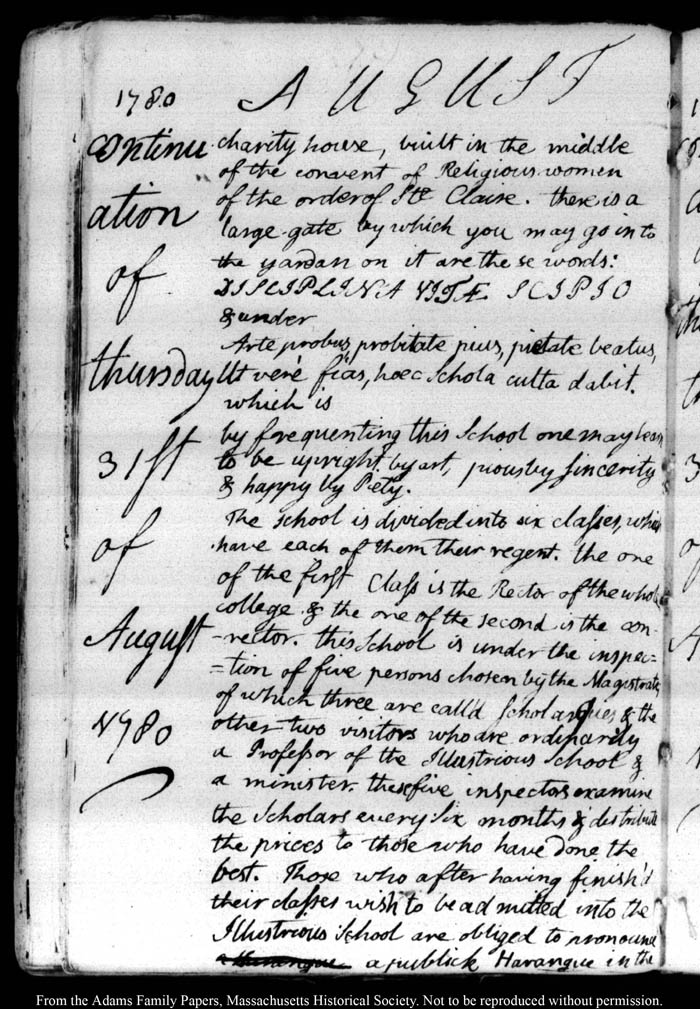 1780 AUGUST
continu
ation
of
thursday
31st
of
August
1780
charity house, built in the middle
of the convent of Religious women
of the order of Ste Claire. there is a
large gate by which you may go in to
the yardan on it are these words:
DISCIPLINA VITÆ SCIPIO
& under
Arte probus, probitate pius, pietate beatus,
Ut veré fias, hoec Schola culta dabit.
which is
by frequenting this School one may learn
to be upright by art, pious by sincerity
& happy by Piety.
The school is divided into six classes, which
have each of them their regent. the one
of the first Class is the Rector of the whole
college & the one of the second is the con-
-rector. this School is under the inspec=
=tion of five persons chosen by the Magistrates
of which three are call'd Scholarques & the
other two visitors who are ordinarily
a Professor of the Illustrious School &
a minister. these five inspectors examine
the Scholars every Six months & distribute
the prices to those who have done the
best. Those who after having finish'd
their classes wish to be admitted into the
Illustrious School are obliged to pronounce
a Harangue a publick Harangue in the
From the Adams Family Papers, Massachusetts Historical Society. Not to be reproduced without permission.